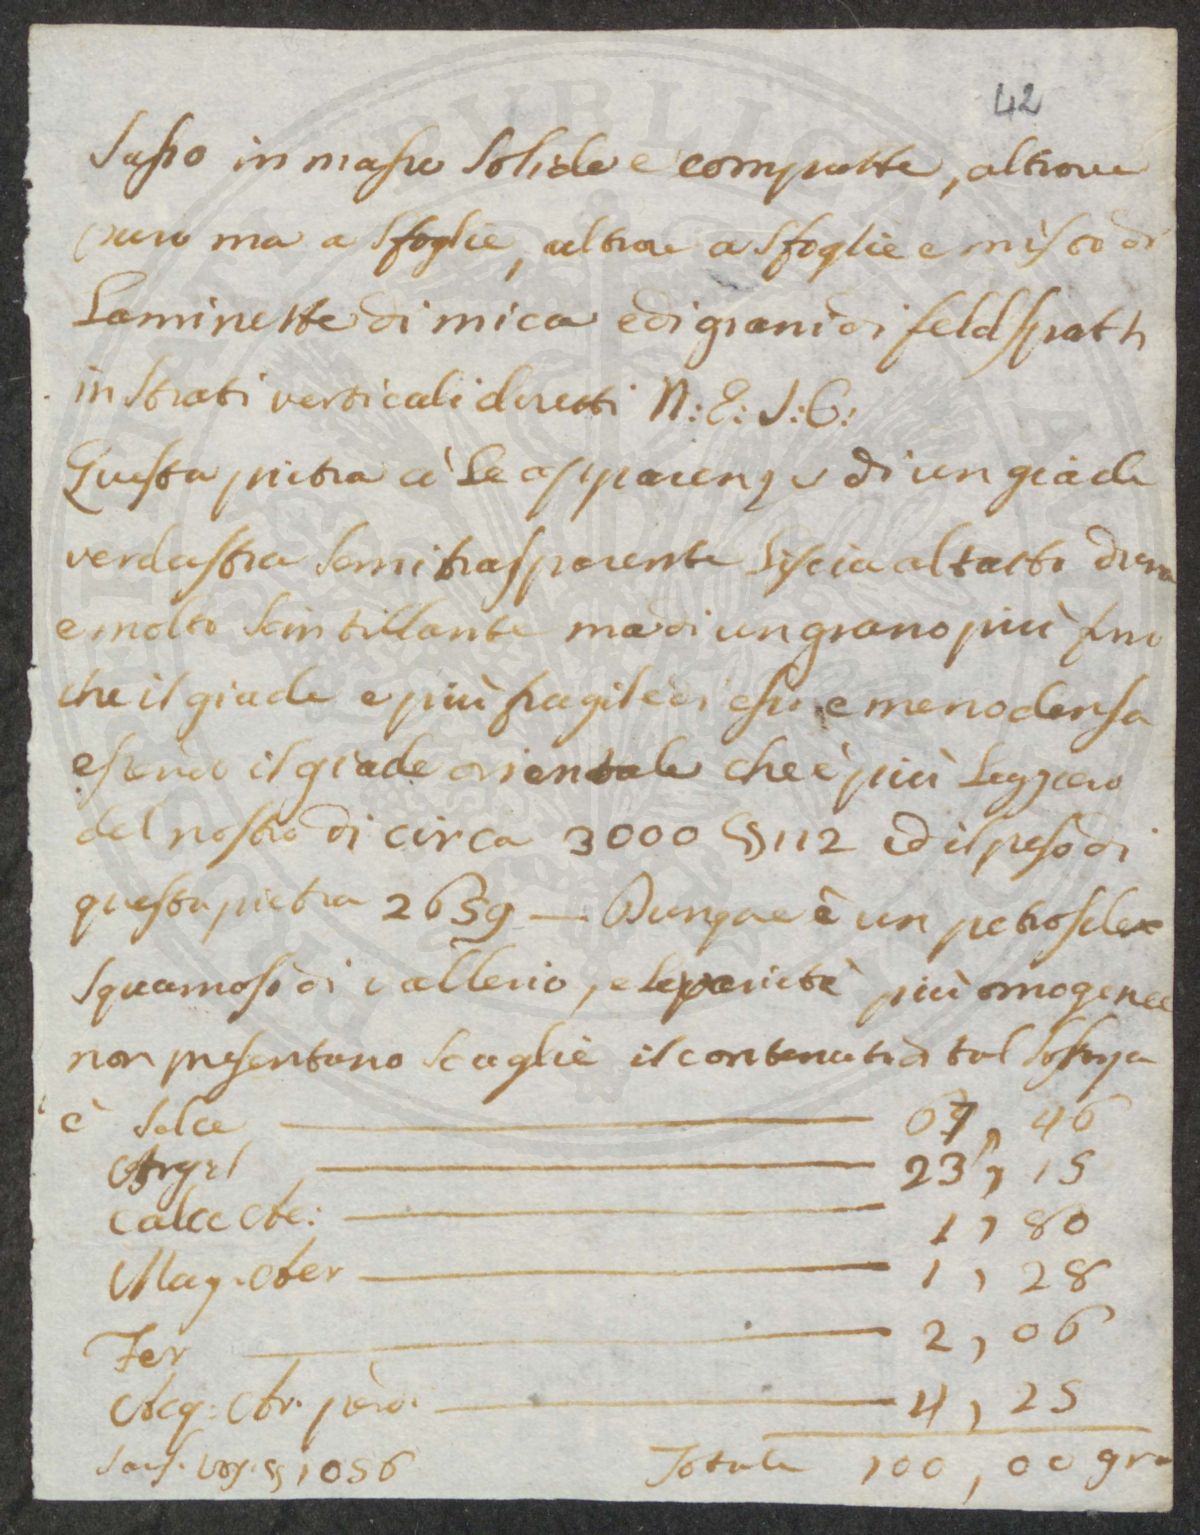 42
Sasso in masse solide e compatte, altrove
puro ma a sfoglie, altrove a sfoglie e misto di
Laminette di mica e di grani di feldspath
in strati verticali diretti N: E: S: O:
Questa pietra à Le apparenze di un giade
verdastra semitrasparente Liscia al tatto dura
e molto scintillante ma di un grano più fino
che il giade e più fragile di esso e meno densa
essendo il giade orientale che è più Leggiero
del nostro di circa 3000 § 112 ed il peso di
questa pietra 2659 — Dunque è un petroselce
squamoso di vallerio, e le varietà più omogenee
non presentano scaglie il contenuto di tal
è Selce — 67, 46
Argil — 23, 15
Calce Ae: — 1, 80
Mag. Aer — 1, 28
Fer — 2, 06
Acq: Ar. perd. — 4, 25
Saus. Voy. § 1056 Totale 100, 00 gra